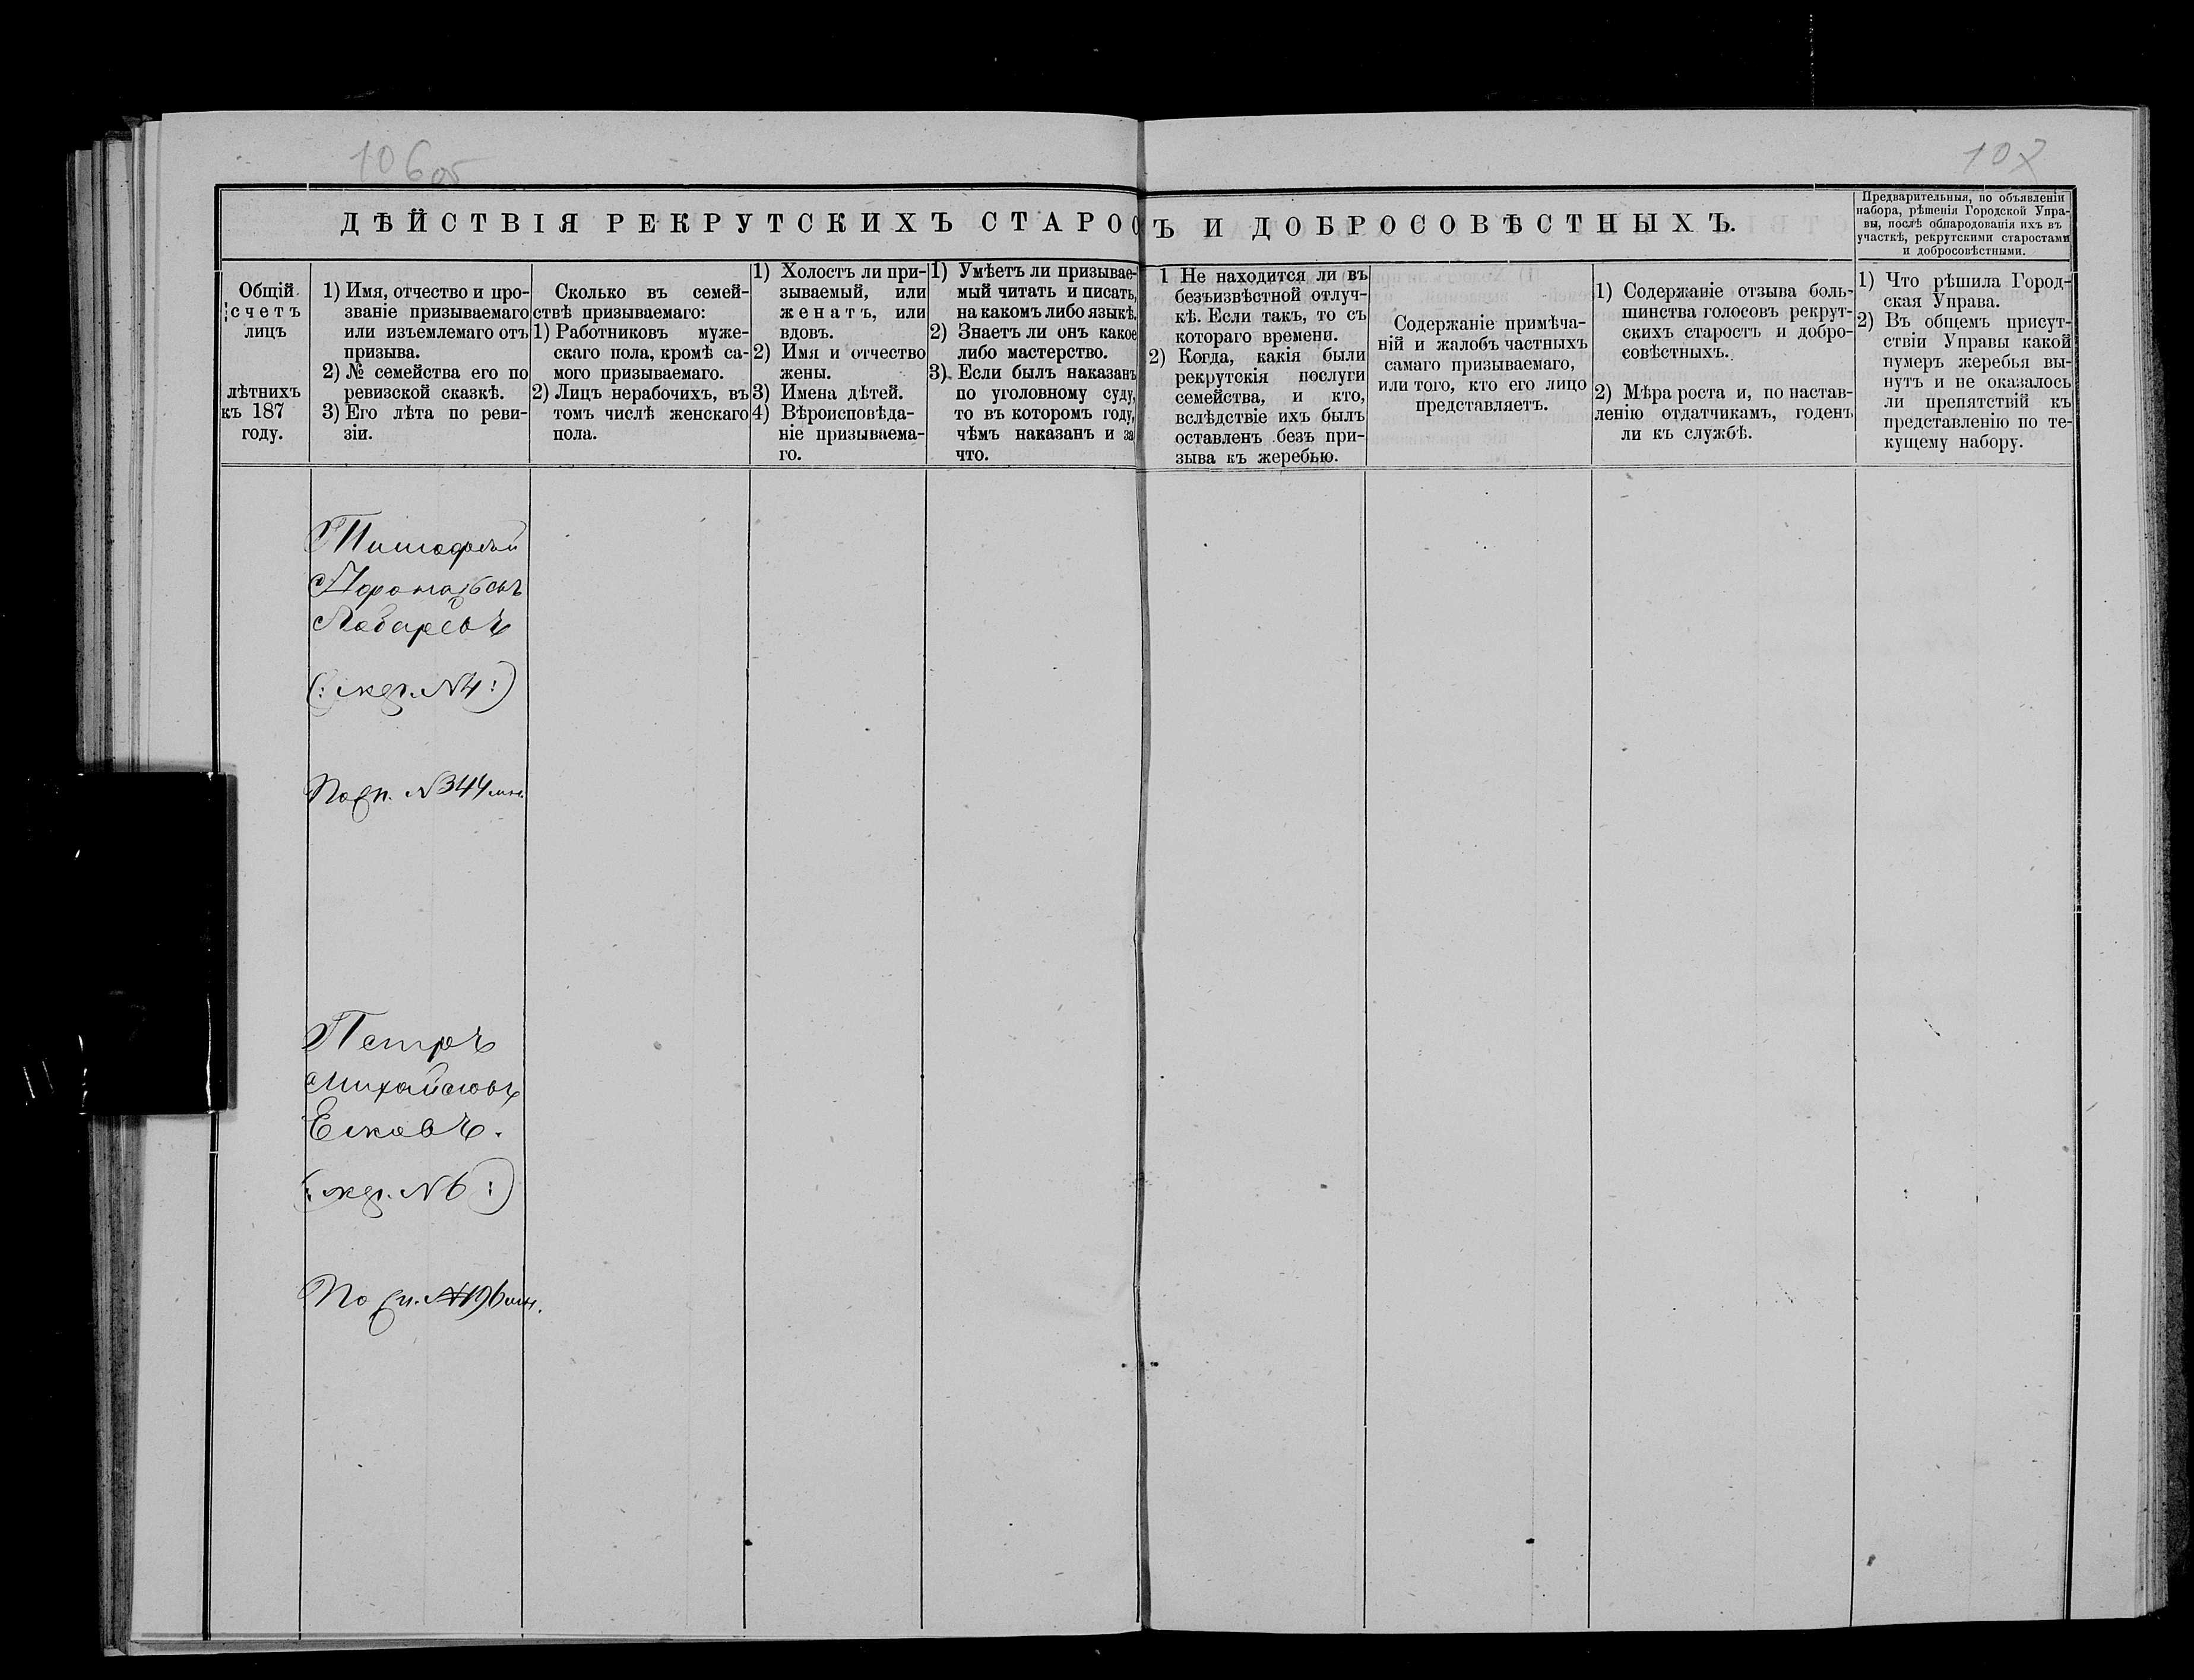 106об
107
ДѢЙСТВІЯ РЕКРУТСКИХЪ СТАРОС
Ъ И ДОБРОСОВѢСТНЫХЪ.
Предварительныя, по объявленіи
набора, рѣшенія Городской Упра-
вы, послѣ обнародованія ихъ въ
участкѣ, рекрутскими старостами
и добросовѣстными.
Общій
счетъ
лицъ
лѣтнихъ
къ 187
году.
1) Имя, отчество и про-
званіе призываемаго
или изъемлемаго отъ
призыва.
2) № семейства его по
ревизской сказкѣ.
3) Его лѣта по реви-
зіи.
Сколько въ семей-
ствѣ призываемаго:
1) Работниковъ муже-
скаго пола, кромѣ са-
мого призываемаго.
2) Лицъ нерабочихъ, въ
томъ числѣ женскаго
пола.
1) Холостъ ли при-
зываемый, или
женатъ, или
вдовъ.
2) Имя и отчество
жены.
3) Имена дѣтей.
4) Вѣроисповѣда-
ніе призываема-
го.
1) Умѣетъ ли призывае-
мый читать и писать,
на какомъ либо языкѣ.
2) Знаетъ ли онъ какое
либо мастерство.
3) Если былъ наказанъ
по уголовному суду,
то въ которомъ году,
чѣмъ наказанъ и за
что.
1 Не находится ли въ
безъизвѣстной отлуч-
кѣ. Если такъ, то съ
котораго времени.
2) Когда, какія были
рекрутскія послуги
семейства, и кто,
вслѣдствіе ихъ былъ
оставленъ безъ при-
зыва къ жеребью.
Содержаніе примѣча-
ній и жалобъ частныхъ
самаго призываемаго,
или того, кто его лицо
представляетъ.
1) Содержаніе отзыва боль-
шинства голосовъ рекрут-
скихъ старостъ и добро-
совѣстныхъ.
2) Мѣра роста и, по настав-
ленію отдатчикамъ, годенъ
ли къ службѣ.
1) Что рѣшила Город-
ская Управа.
2) Въ общемъ присут-
ствіи Управы какой
нумеръ жеребья вы-
нутъ и не оказалось
ли препятствій къ
представленію по те-
кущему набору.
Тимофей
(: жер. №4 :)
По сп. №344
Петръ
Михайловъ
Есковъ.
(: жер. №6 :)
По сп. №196